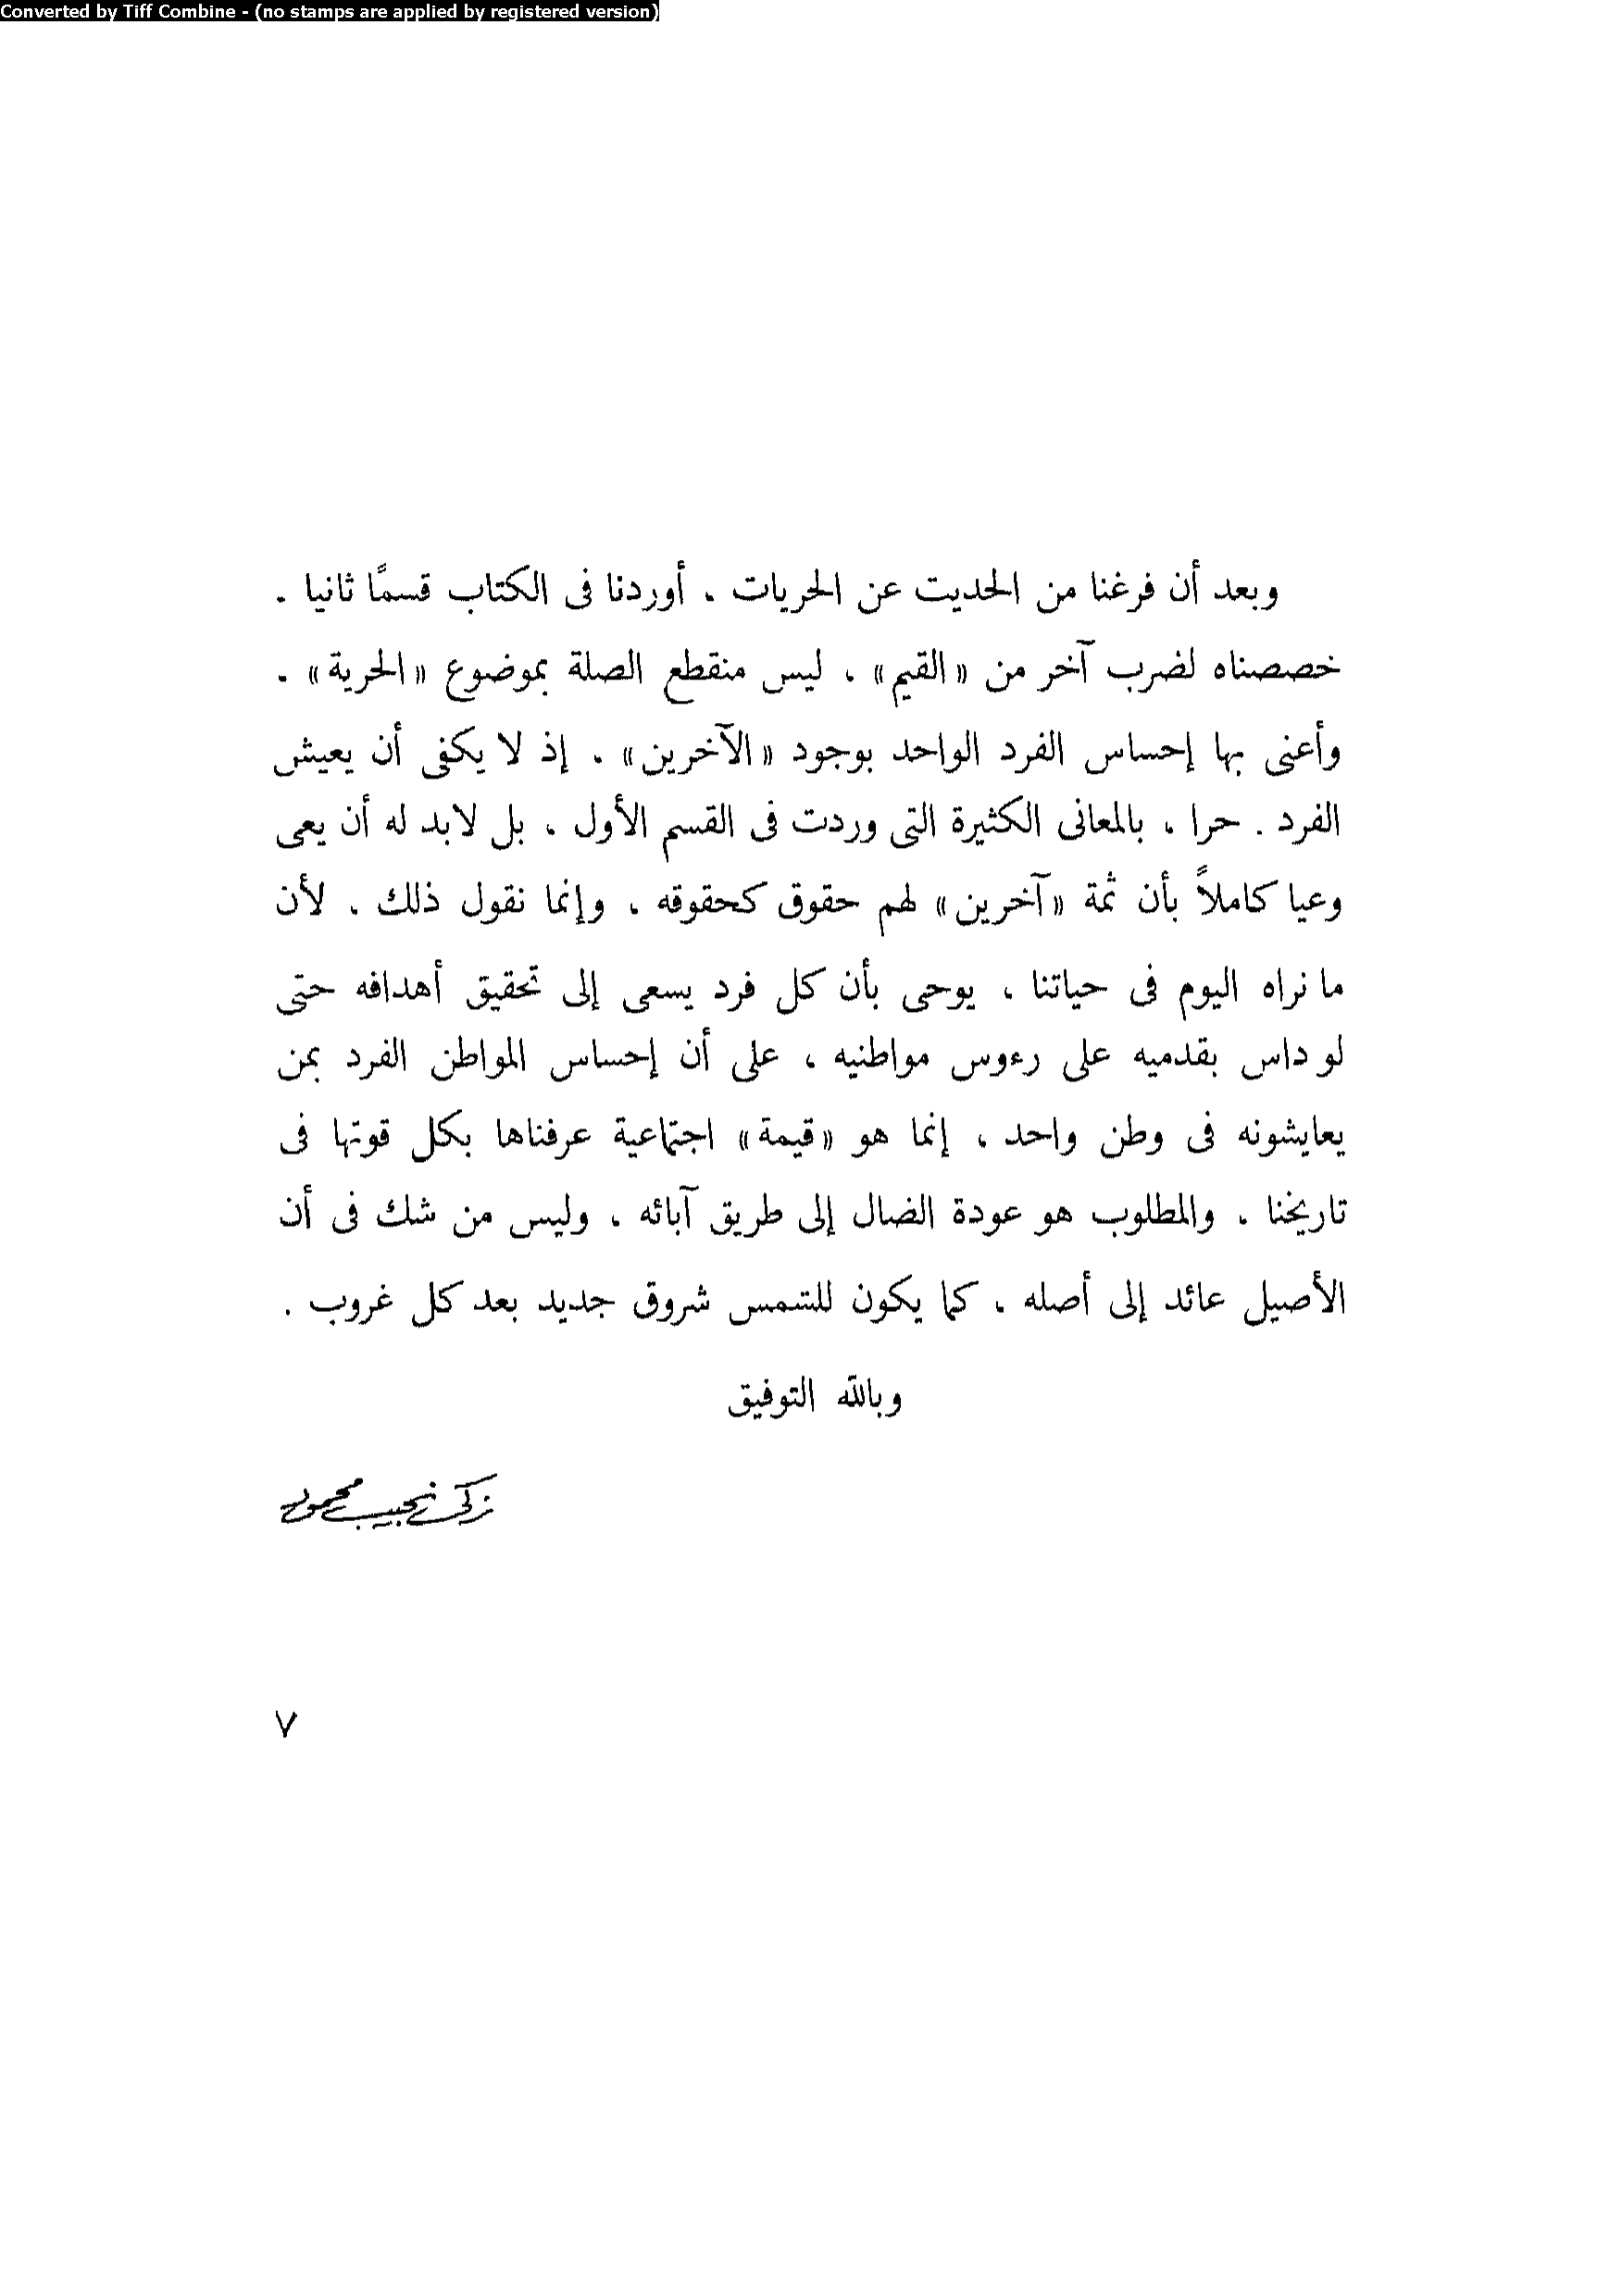 Converted by Tiff Combine - (no stamps are applied by registered version)
وبعد أن فرغنا من الحديث عن الحريات ، أوردنا فى الكتاب قسمًا ثانيا ،
خصصناه لضرب آخر من «القيم» ، ليس منقطع الصلة بموضوع «الحرية» ،
وأعنى بها إحساس الفرد الواحد بوجود «الآخرين» ، إذ لا يكفى أن يعيش
الفرد . حرا ، بالمعانى الكثيرة التى وردت فى القسم الأول ، بل لابد له أن يعى
وعيا كاملاً بأن ثمة «آخرين» لهم حقوق كحقوقه ، وإنما نقول ذلك ، لأن
ما نراه اليوم فى حياتنا ، يوحى بأن كل فرد يسعى إلى تحقيق أهدافه حتى
لو داس بقدميه على رءوس مواطنيه ، على أن إحساس المواطن الفرد بمن
يعايشونه فى وطن واحد ، إنما هو «قيمة» اجتماعية عرفناها بكل قوتها فى
تاريخنا ، والمطلوب هو عودة الضال إلى طريق آبائه ، وليس من شك فى أن
الأصيل عائد إلى أصله ، كما يكون للشمس شروق جديد بعد كل غروب .
وبالله التوفيق
زكى نجيب محمود
٧